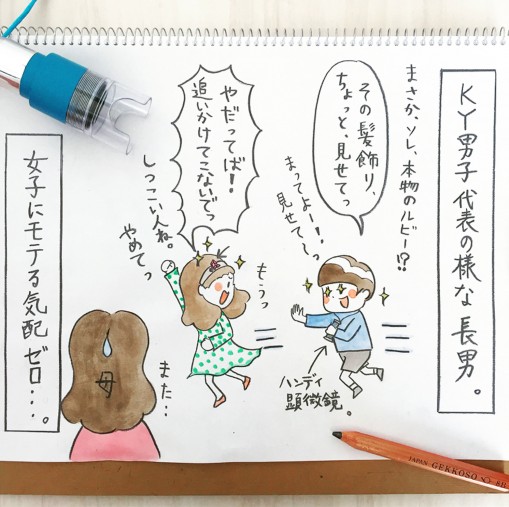 KY男子代表の様な長男。
まさか、ソレ、本物のルビー!?
その髪飾り、
ちょっと、見せてっ
まってよー!
見せて〜っ
ハンディ
顕微鏡。
やだってば!
追いかけてこないでっ
しつこい人ね。
やめてっ
もうっ
また…
母
女子にモテる気配ゼロ…。
JAPAN GEKKOSO